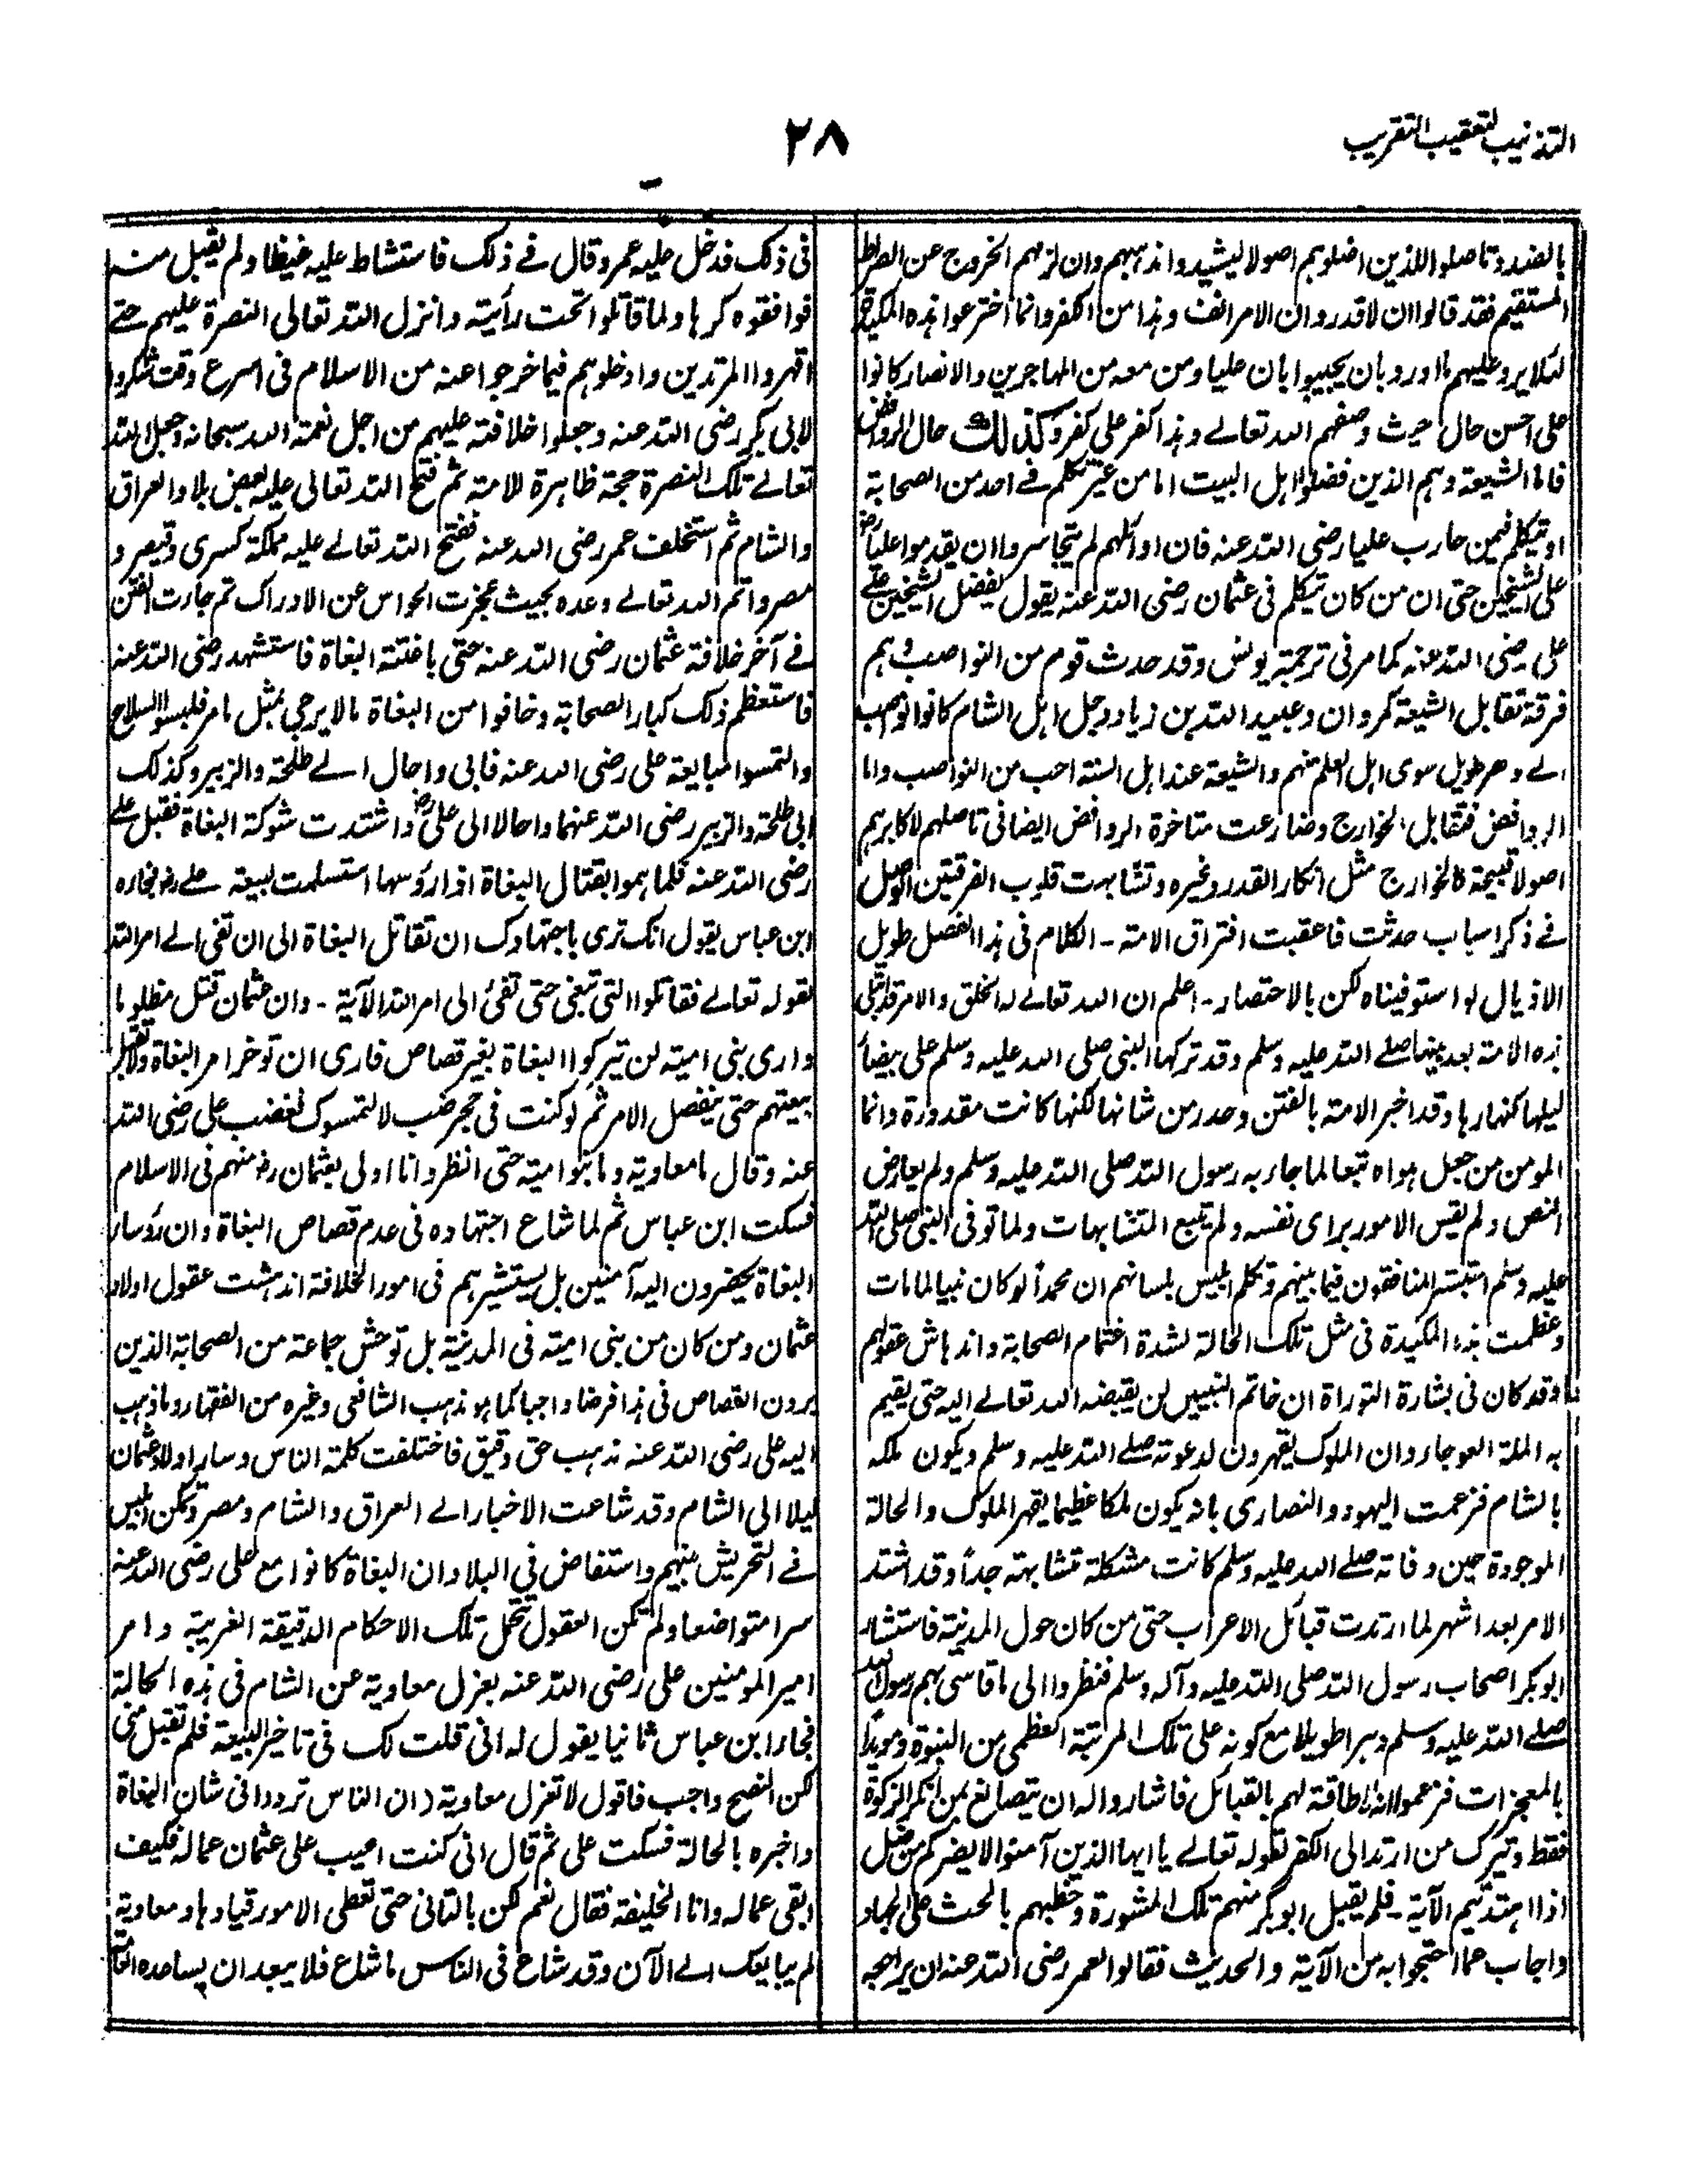 التذنيب لتعقيب التقريب
٢٨
بالضد وتاصلوا الذين اضلوهم اصولا ليشيدوا مذهبهم وان لزمهم الخروج عن الصراط
المستقيم فقد قالوا ان لا قدر وان الامر انف وهذا من الكفر وانما اخترعوا هذه المكيدة
لئلا يرد عليهم ما اوردوا بان يجيبوا بان عليا ومن معه من المهاجرين والانصار كانوا
على احسن حال حيث وصفهم الله تعالے وهذا كفر على كفر وكذلك حال الروافض
فاما الشيعة وهم الذين فضلوا اهل البيت اما من غير تكلم فے احد من الصحابة
او تيكلم فيمن حارب عليا رضى الله عنه فان اوائلهم لم يتجاسروا ان يقدموا عليا رض
على الشيخين حتى ان من كان تيكلم فى عثمان رضى الله عنه يقول بفضل الشيخين علے
على رضى الله عنه كما مر فى ترجمة يونس وقد حدث قوم من النواصب وهم
فرقة تقابل الشيعة كمروان وعبيد الله بن زياد وجل اهل الشام كانوا نواصب
الے دهر طويل سوى اهل العلم منهم والشيعة عند اهل السنة احب من النواصب واما
الروافض فتقابل الخوارج وضارعت متاخرة الروافض ايضا فى تاصلهم لاكابرهم
اصولا قبيحة كالخوارج مثل انكار القدر وغيره وتشابهت قلوب الفرقتين الوصل
فے ذكر اسباب حدثت فاعقبت افتراق الامة - الكلام فى هذا الفصل طويل
الاذيال لو استوفيناه لكن بالاختصار - اعلم ان الله تعالے له الخلق والامر قد ابتلى
هذه الامة بعد نبيها صلے الله عليه وسلم وقد تركها النبى صلى الله عليه وسلم على بيضاء
ليلها كنهارها وقد اخبر الامة بالفتن وحذر من شانها لكنها كانت مقدورة وانما
المومن من جعل هواه تبعا لما جاء به رسول الله صلى الله عليه وسلم ولم يعارض
النص ولم يقس الامور براى نفسه ولم يتبع المتشابهات ولما توفى النبى صلى الله
عليه وسلم استبشر المنافقون فيما بينهم وتكلم ابليس بلسانهم ان محمداً لو كان نبيا لما مات
وعظمت هذه المكيدة فى مثل تلك الحالة لشدة اغتمام الصحابة واندهاش عقولهم
وقد كان فى بشارة التوراة ان خاتم النبيين لن يقبضه الله تعالے اليه حتى يقيم
به الملة العوجاء وان الملوك يقهرون لدعوته صلے الله عليه وسلم ويكون ملكه
بالشام فزعمت اليهود والنصارى بانه يكون ملكا عظيما يقهر الملوك والحالة
الموجودة حين وفاته صلے الله عليه وسلم كانت مشكلة متشابهة جداً وقد اشتد
الامر بعد اشهر لما ارتدت قبائل الاعراب حتى من كان حول المدينة فاستشار
ابو بكر اصحاب رسول الله صلى الله عليه وآله وسلم فنظروا الى ما قاسى بهم رسول الله
صلے الله عليه وسلم دهرا طويلا مع كونه على تلك المرتبة العظمى من النبوة ومويدا
بالمعجزات فزعموا انه لا طاقة لهم بالقبائل فاشاروا له ان يتصالغ بمن انكر الزكوة
فقط ويترك من ارتد الى الكفر لقوله تعالے يا ايها الذين آمنوا لا يضركم من ضل
اذا اهتديتم الآية - فلم يقبل ابو بكر منهم تلك المشورة وخطبهم بالحث على الجهاد
واجاب عما احتجوا به من الآية والحديث فقالوا لعمر رضى الله عنه ان يراجعه
فى ذلك فدخل عليه عمر وقال فے ذلك فاستشاط عليه غيظا ولم يقبل منه
فوافقوه كرها ولما قاتلوا تحت رأيته وانزل الله تعالى النصرة عليهم حتے
اقهروا المرتدين وادخلوهم فيما خرجوا عنه من الاسلام فى اسرع وقت شكروا
لابى بكر رضى الله عنه وجعلوا خلافته عليهم من اجل نعمة الله سبحانه وجعل الله
تعالے تلك النصرة حجة ظاهرة للامة ثم فتح الله تعالى عليه بعض بلاد العراق
والشام ثم استخلف عمر رضى الله عنه ففتح الله تعالے عليه مملكة كسرى وقيصر و
مصر واتم الله تعالے وعده بحيث عجزت الحواس عن الادراك ثم جاءت الفتن
فے آخر خلافة عثمان رضى الله عنه حتى باغتته البغاة فاستشهد رضى الله عنه
فاستعظم ذلك كبار الصحابة وخافوا من البغاة مالا يرجى بمثل ما مر فلبسوا السلاح
والتمسوا لمبايعة على رضى الله عنه فابى واحال الے طلحة والزبير وكذلك
ابى طلحة والزبير رضى الله عنهما واحالا الى على رض واشتدت شوكة البغاة فقبل علے
رضى الله عنه فلما هموا بقتال البغاة اذا رؤسها استسلمت لبيعة علے رض فجاءه
ابن عباس يقول انك ترى باجتهادك ان تقاتل البغاة الى ان تفى الے امر الله
لقوله تعالے فقاتلوا التى تبغى حتى تفئ الى امر الله الآية - وان عثمان قتل مظلوما
وارى بنى امية لن يتركوا البغاة بغير قصاص فارى ان توخر امر البغاة ولا تقبل
بيعتهم حتى ينفصل الامر ثم لو كنت فى جحر ضب لالتمسوك فغضب على رضى الله
عنه وقال ما معاوية وما بنو امية حتى انظر وانا اولى بعثمان رض منهم فى الاسلام
فسكت ابن عباس ثم لما شاع اجتهاده فى عدم قصاص البغاة وان رؤساء
البغاة يحضرون اليه آمنين بل يستشيرهم فى امور الخلافة اندهشت عقول اولاد
عثمان ومن كان من بنى امية فى المدينة بل توحش جماعة من الصحابة الذين
يرون القصاص فى هذا فرضا واجبا كما هو مذهب الشافعى وغيره من الفقهاء وما ذهب
اليه على رضى الله عنه مذهب حق دقيق فاختلفت كلمة الناس وسار اولاد عثمان
ليلا الى الشام وقد شاعت الاخبار الے العراق والشام ومصر وتمكن ابليس
فے التحريش بينهم واستفاض فى البلاد ان البغاة كانوا مع على رضى الله عنه
سرا متواضعا ولم تكن العقول تتحمل تلك الاحكام الدقيقة الغريبة وامر
امير المومنين على رضى الله عنه بعزل معاوية عن الشام فى هذه الحالة
فجاء ابن عباس ثانيا يقول له انى قلت لك فى تاخير البيعة فلم تقبل منى
لكن النصح واجب فاقول لا تعزل معاوية وان الناس ترددوا فى شان البغاة
واخبره بالحالة فسكت على ثم قال انى كنت اعيب على عثمان عماله فكيف
ابقى عماله وانا الخليفة فقال نعم لكن بالتانى حتى تعطى الامور قيادها ومعاوية
لم يبايعك الے الآن وقد شاع فى الناس ما شاع فلا يبعد ان يساعده